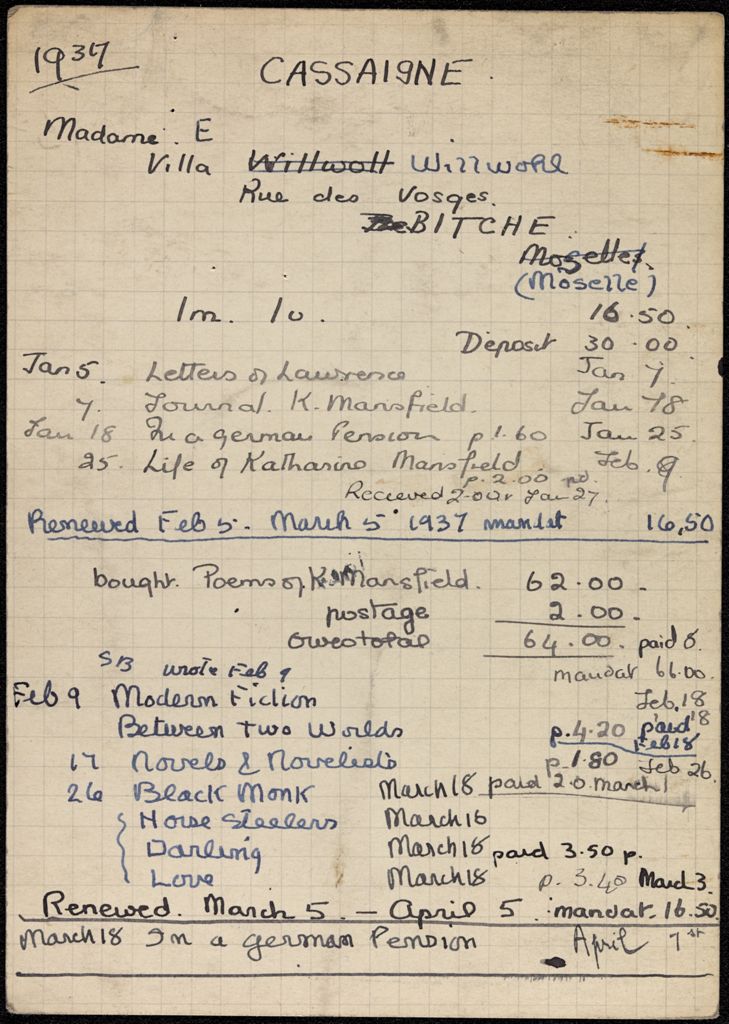 1937
CASSAIGNE.
Madame. E
Villa Willwoll Willwohl
Rue des Vosges.
BITCHE
Moselle.
(Moselle)
1m. 1v. 16.50.
Deposit 30.00
Jan 5. Letters of Lawrence Jan 7.
7. Journal. K. Mansfield. Jan 18
Jan 18 In a german Pension p 1.60 Jan 25.
25. Life of Katharine Mansfield. Feb. 9
p. 2.00 pd.
Recieved Jan 27.
Renewed Feb 5. March 5 1937 mandat 16,50
bought. Poems of K. Mansfield. 62.00.
postage 2.00.
total 64.00. paid
SB wrote Feb 9 mandat 66.00.
Feb 9 Modern Fiction Feb. 18
Between Two Worlds p. 4.20 paid 18
Feb 18
17 Novels & Novelists p 1.80 Feb 26.
26 Black Monk March 18 paid 2.0. March 1
Horse Stealers March 18
Darling March 18 paid 3.50 p.
Love March 18 p. 3.40 March 3.
Renewed. March 5. - April 5. mandat. 16.50.
March 18 In a german Pension April 7st